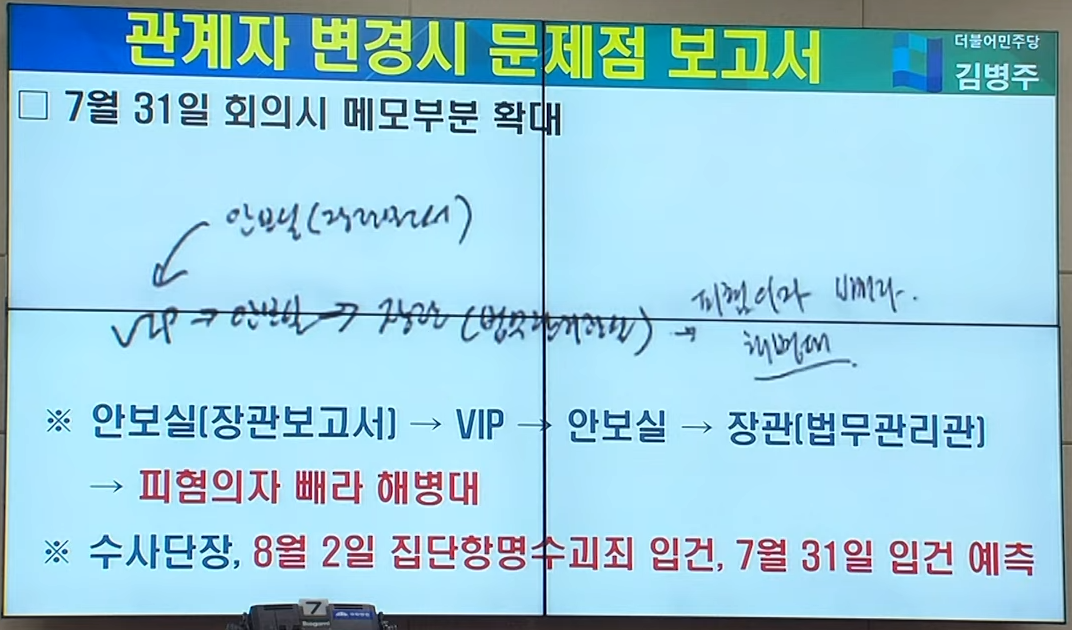 관계자 변경시 문제점 보고서
더불어민주당
김병주
□ 7월 31일 회의시 메모부분 확대
안보실(장관보고서)
VIP → 안보실 → 장관 (법무관리관실) → 피혐의자 빼라.
해병대
※ 안보실(장관보고서) → VIP → 안보실 → 장관(법무관리관)
→ 피혐의자 빼라 해병대
※ 수사단장, 8월 2일 집단항명수괴죄 입건, 7월 31일 입건 예측
7
Ikegami